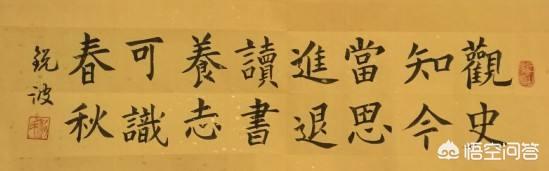 觀史
知今
當思
進退
讀書
養志
可識
春秋
銳波
悟空问答